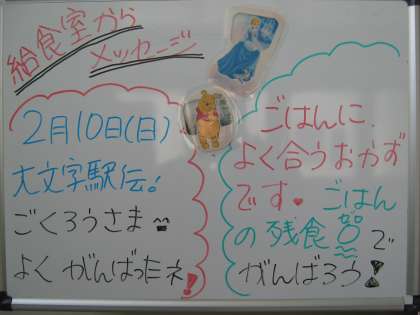 給食室から
メッセージ
2月10日(日)
大文字駅伝!
ごくろうさま
よくがんばったネ!
ごはんに
よく合うおかず
です♥ごはん
の残食ゼロで
がんばろう!